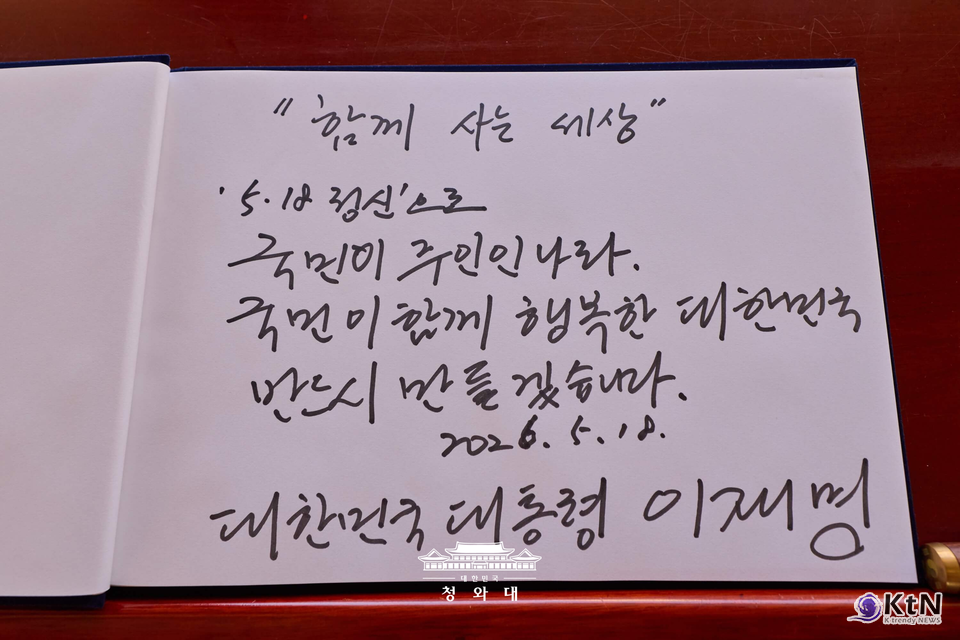 "함께 사는 세상"
'5.18 정신'으로
국민이 주인인 나라.
국민이 함께 행복한 대한민국
반드시 만들겠습니다.
2026. 5. 18.
대한민국 대통령 이재명
대한민국
청와대
KtN
K trendy NEWS